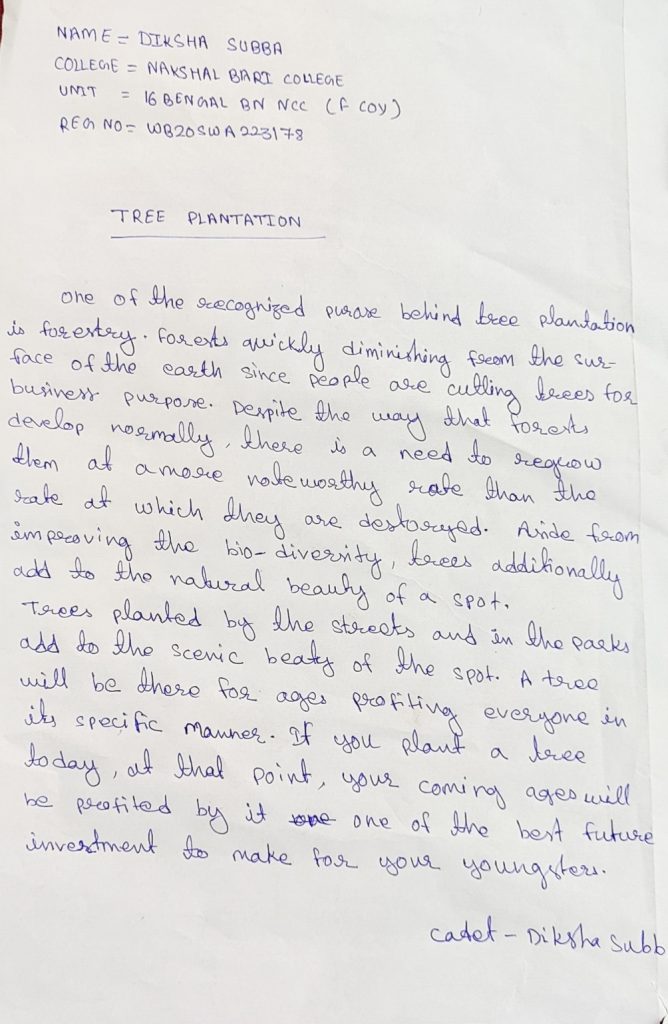 NAME = DIKSHA SUBBA
COLLEGE = NAKSHAL BARI COLLEGE
UNIT = 16 BENGAL BN NCC (F COY)
REG NO = WB20SWA223178
TREE PLANTATION
One of the recognized purose behind tree plandation
is forestry. Forests quickly diminishing from the sur-
face of the earth since people are cutting trees for
business purpose. Despite the way that forests
develop normally, there is a need to regrow
them at a more noteworthy rate than the
rate at which they are destoryed. Aside from
improving the bio-diversity, trees additionally
add to the natural beauty of a spot.
Trees planted by the streets and in the parks
add to the scenic beaty of the spot. A tree
will be there for ages profiting everyone in
its specific manner. If you plant a tree
today, at that point, your coming ages will
be profited by it one of the best future
investment to make for your youngsters.
Cadet - Diksha Subb